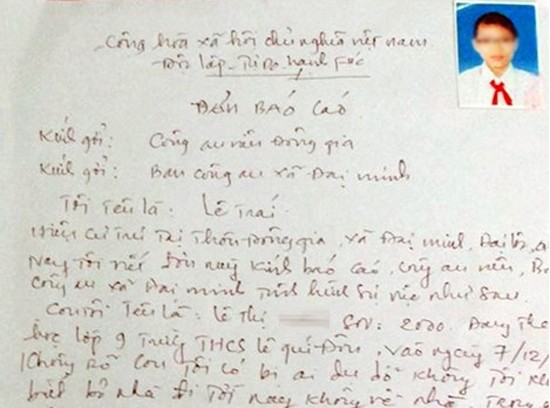 Cộng hòa xã hội chủ nghĩa việt nam
Độc lập Tự Do hạnh Fúc
ĐƠN BÁO CÁO
Kính gởi: Công an Đông gia
Kính gởi: Ban công an xã Đại minh
Tôi tên là: Lê Trái
Hiện cư trú Tại Thôn Đông gia, xã Đại minh, Đại lộc,
Nay Tôi viết đơn này kính báo cáo, công an
Công an xã Đại minh Tình hình sự việc như sau
Con Tôi Tên là: Lê Thị SN: 2000. Đang
học lớp 9 Trường THCS Lê quí Đôn, vào ngày 7/12/
Không rõ con Tôi có bị ai dụ dỗ không Tôi
biết bỏ nhà đi Tới nay không về nhà Trong